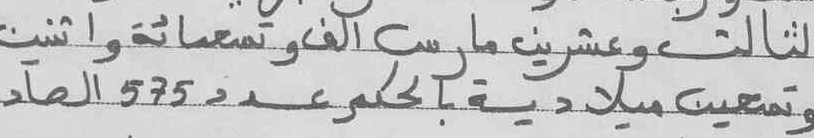 لثالث وعشرين مارس الف وتسعمائة واثنين
وتسعين ميلادية بالحكم عدد 575 الصاد